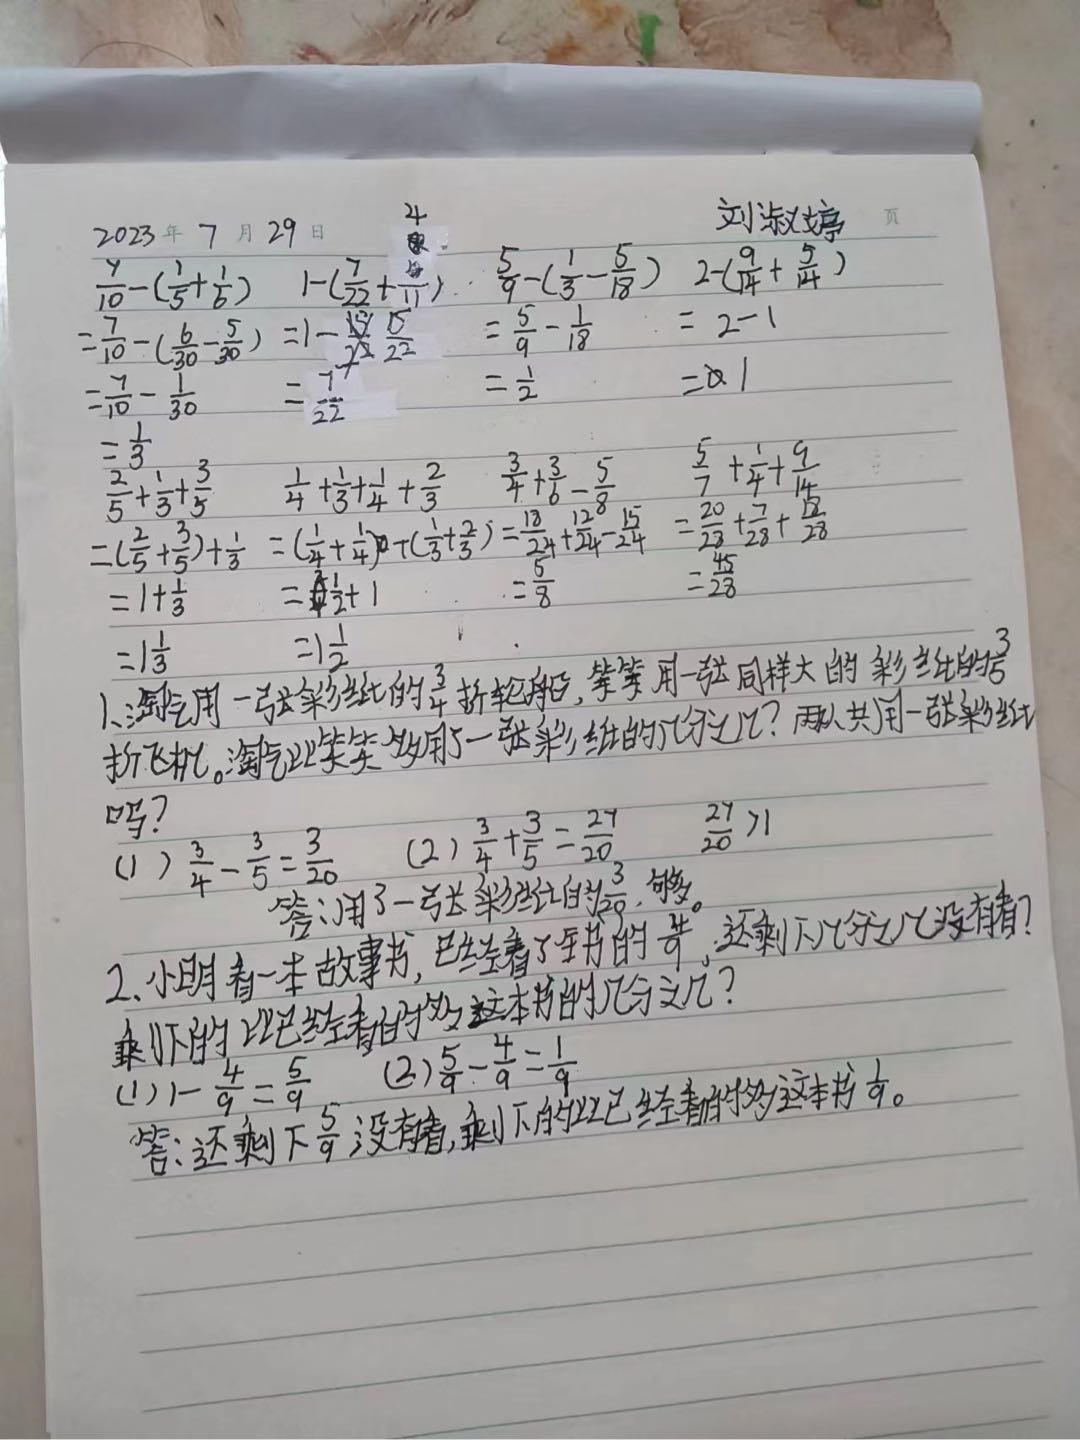 2023年 7月 29日 刘淑婷 页
7/10-(1/5+1/6) 1-(7/22+4/11) 5/9-(1/3-5/18) 2-(9/14+5/14)
=7/10-(6/30-5/30) =1-15/22 =5/9-1/18 =2-1
=7/10-1/30 =7/22 =1/2 =1
=1/3
2/5+1/3+3/5 1/4+1/3+1/4+2/3 3/4+3/6-5/8 5/7+1/4+9/14
=(2/5+3/5)+1/3 =(1/4+1/4)+(1/3+2/3) =18/24+12/24-15/24 =20/28+7/28+18/28
=1+1/3 =1/2+1 =5/8 =45/28
=1 1/3 =1 1/2
1、淘气用一张彩纸的3/4折轮船,笑笑用一张同样大的彩纸的3/5
折飞机。淘气比笑笑多用了一张彩纸的几分之几?两人共用一张彩纸
吗?
(1) 3/4-3/5=3/20 (2) 3/4+3/5=27/20 27/20>1
答:用了一张彩纸的3/20,够。
2、小明看一本故事书,已经看了全书的4/9,还剩下几分之几没有看?
剩下的比已经看的多这本书的几分之几?
(1) 1-4/9=5/9 (2) 5/9-4/9=1/9
答:还剩下5/9没有看,剩下的比已经看的多这本书1/9。